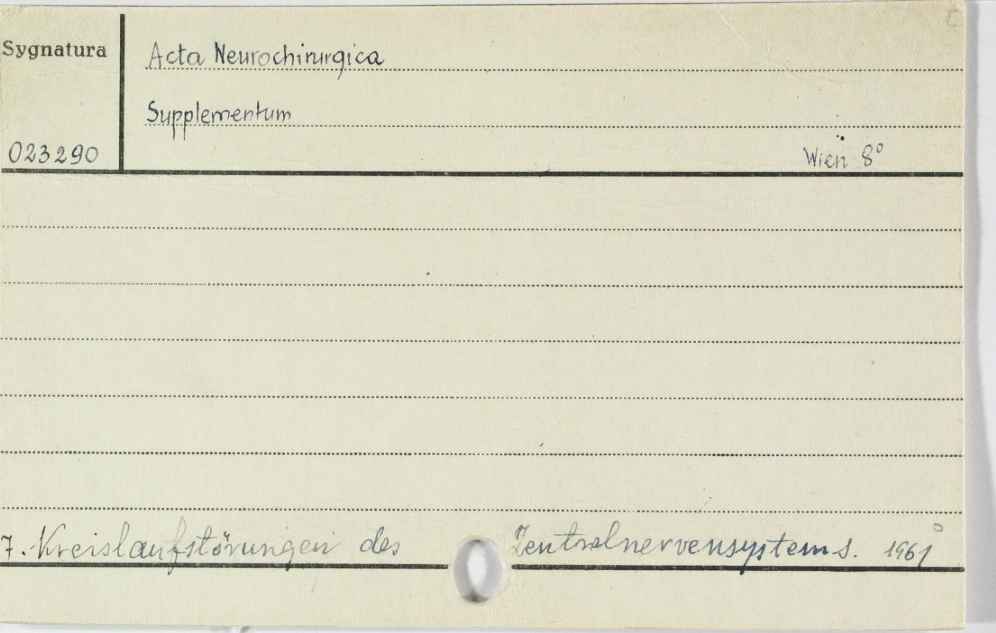 Sygnatura
Acta Neurochirurgica
Supplementum
023290
Wien 8°
7. Kreislaufstörungen des Zentralnervensystems. 1961